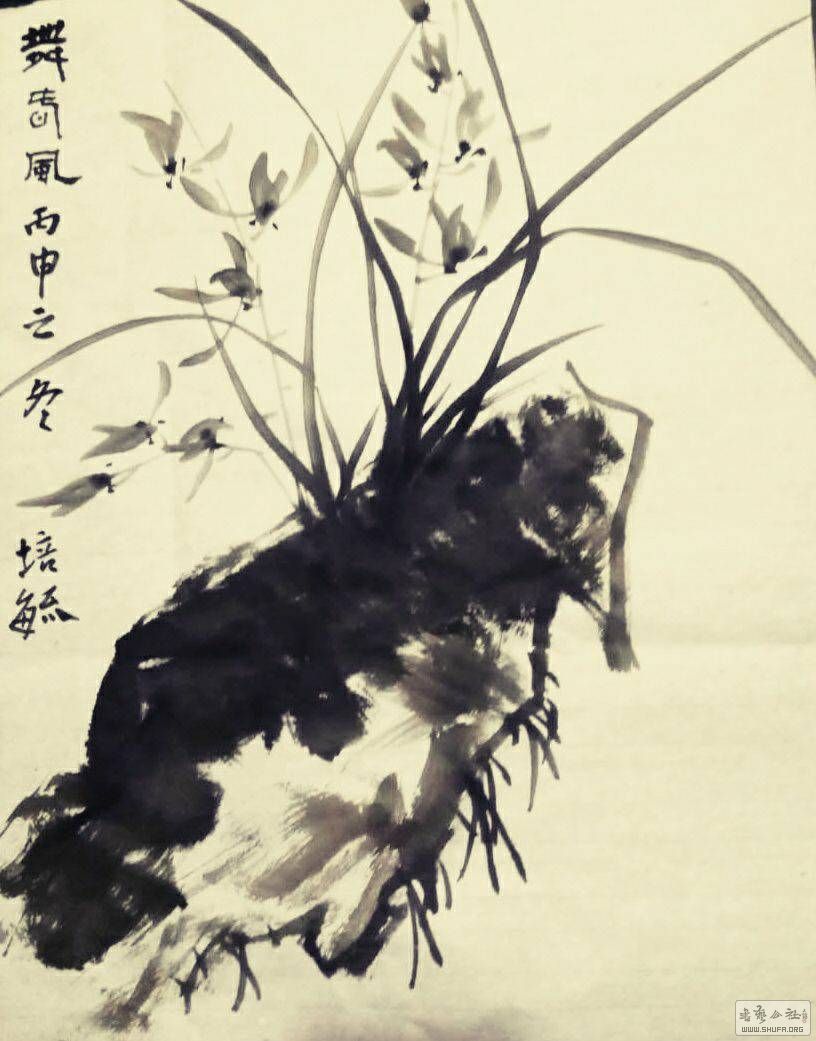 舞春風 丙申之冬 培毓
書藝公社
WWW.SHUFA.ORG